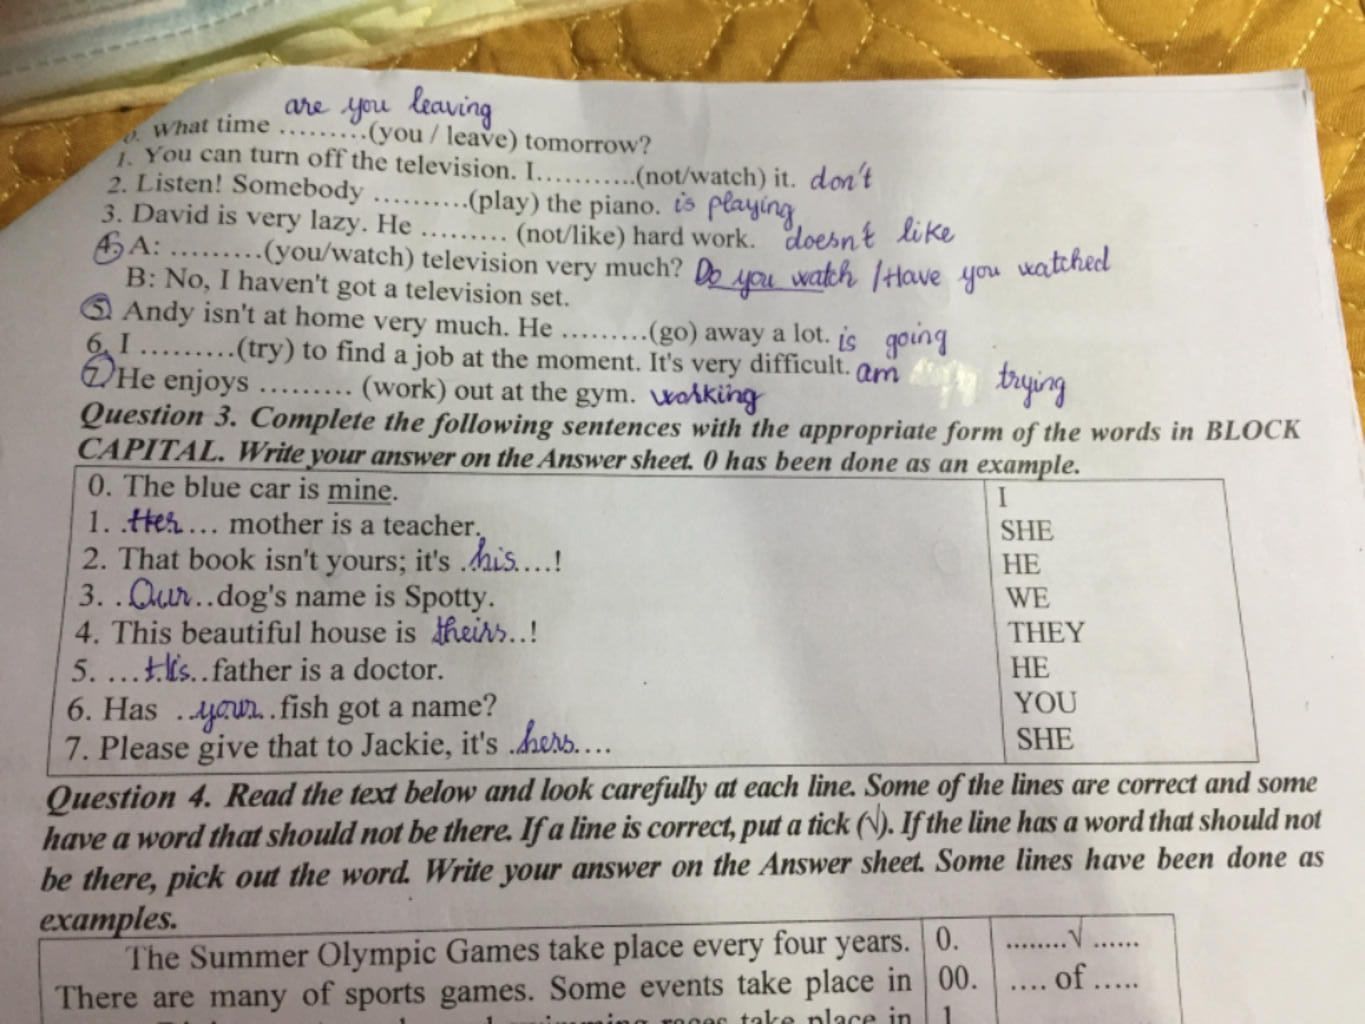 are you leaving
0. What time .........(you / leave) tomorrow?
1. You can turn off the television. I...........(not/watch) it. don't
2. Listen! Somebody ..........(play) the piano. is playing
3. David is very lazy. He ......... (not/like) hard work. doesn't like
4. A: ..........(you/watch) television very much? Do you watch / Have you watched
B: No, I haven't got a television set.
5. Andy isn't at home very much. He .........(go) away a lot. is going
6. I ..........(try) to find a job at the moment. It's very difficult. am trying
7. He enjoys .......... (work) out at the gym. working
Question 3. Complete the following sentences with the appropriate form of the words in BLOCK
CAPITAL. Write your answer on the Answer sheet. 0 has been done as an example.
0. The blue car is mine. I
1. .Her... mother is a teacher. SHE
2. That book isn't yours; it's .his....! HE
3. ..Our..dog's name is Spotty. WE
4. This beautiful house is theirs..! THEY
5. ...His..father is a doctor. HE
6. Has ..your..fish got a name? YOU
7. Please give that to Jackie, it's .hers.... SHE
Question 4. Read the text below and look carefully at each line. Some of the lines are correct and some
have a word that should not be there. If a line is correct, put a tick (√). If the line has a word that should not
be there, pick out the word. Write your answer on the Answer sheet. Some lines have been done as
examples.
The Summer Olympic Games take place every four years. 0. ........√......
There are many of sports games. Some events take place in 00. .... of .....
races take place in 1